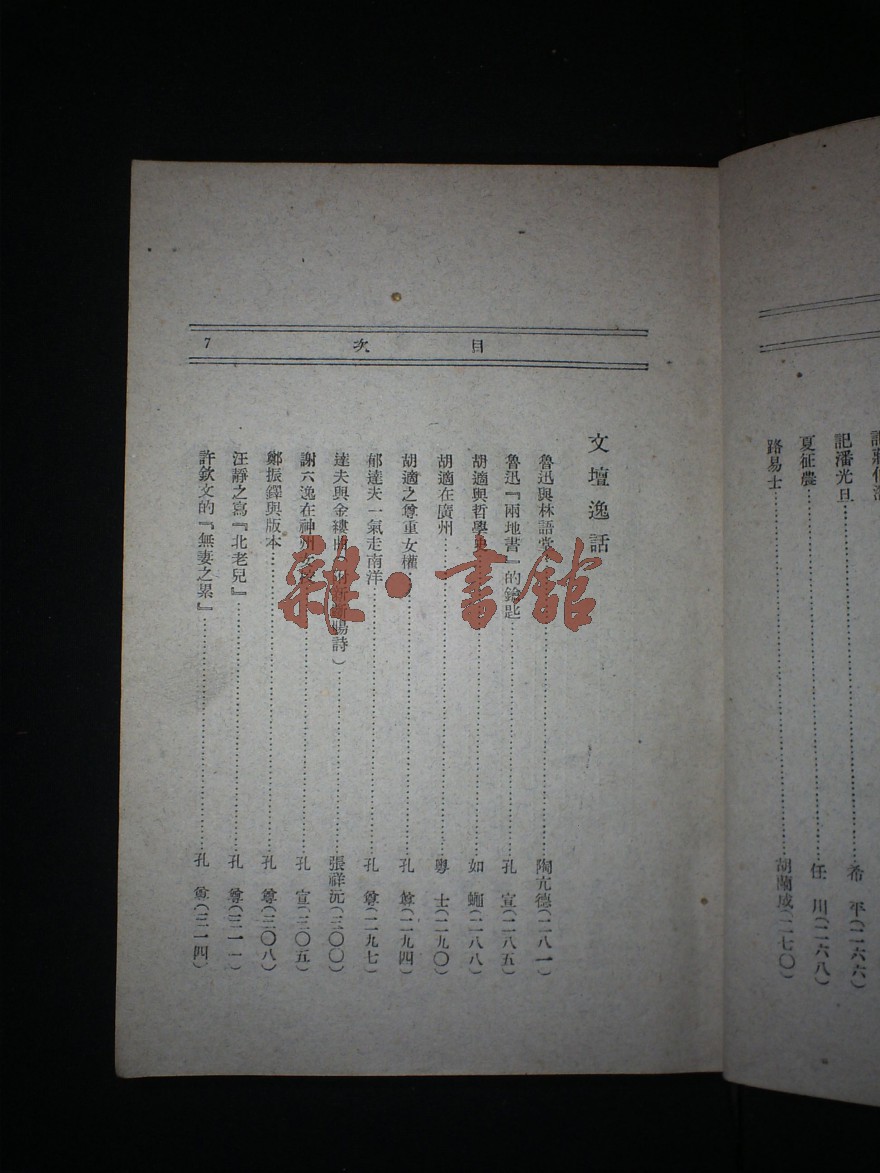 記潘光旦……希　平（二六六）
夏征農……任　川（二六八）
路易士……胡蘭成（二七〇）
目　次　7
文壇逸話
魯迅與林語……陶亢德（二八一）
魯迅『兩地書』的鑰匙……孔　宣（二八五）
胡適與哲學史……如　（二八八）
胡適在廣州……粵　士（二九〇）
胡適之尊重女權……孔　尊（二九四）
郁達夫一氣走南洋……孔　尊（二九七）
達夫與金縷曲（　　　　詩）……張祥沅（三〇〇）
謝六逸在神州……孔　宣（三〇五）
鄭振鐸與版本……孔　尊（三〇八）
汪靜之寫『北老兒』……孔　尊（三一一）
許欽文的『無妻之累』……孔　尊（三一四）
雜·書館